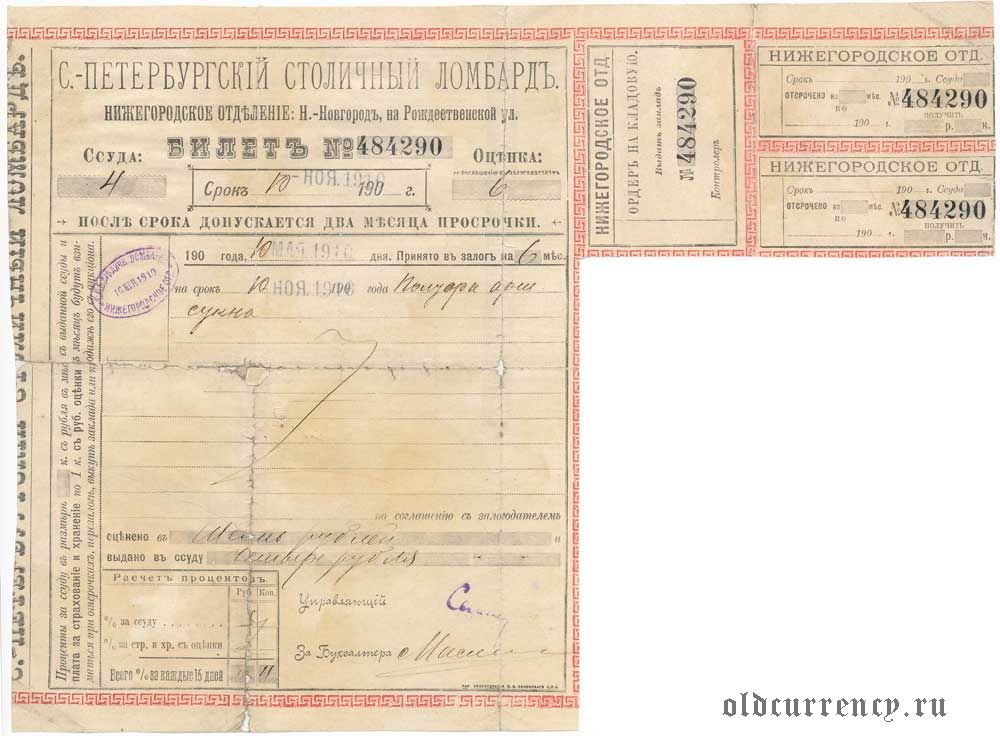 С.-ПЕТЕРБУРГСКІЙ СТОЛИЧНЫЙ ЛОМБАРДЪ.
НИЖЕГОРОДСКОЕ ОТДѢЛЕНІЕ: Н.-Новгородъ, на Рождественской ул.
БИЛЕТЪ № 484290
Ссуда:
Оцѣнка:
4
по соглашенію съ залогодателемъ
6
Срокъ 10 НОЯ.1910 190 г.
ПОСЛѢ СРОКА ДОПУСКАЕТСЯ ДВА МѢСЯЦА ПРОСРОЧКИ.
190 года, 10 МАЯ.1910 дня. Принято въ залогъ на 6 мѣс.
на срокъ 10 НОЯ.1910 190 года Полтора арш
сукна
по соглашенію съ залогодателемъ
оцѣнено въ Шесть рублей
выдано въ ссуду Четыре рубля
Расчетъ процентовъ.
Руб. Коп.
% за ссуду
% за стр. и хр. съ оцѣнки
Всего % за каждые 15 дней 11
Управляющій
За Бухгалтера
С.-ПЕТЕРБУРГСКІЙ СТОЛИЧНЫЙ ЛОМБАРДЪ.
Проценты за ссуду въ размѣрѣ к. съ рубля въ мѣс. съ выданной ссуды и
плата за страхованіе и храненіе по 1 к. съ руб. оцѣнки въ мѣсяцъ будутъ взи-
маться при отсрочкахъ, перезалогѣ, выкупѣ заклада или продажѣ его съ аукціона.
НИЖЕГОРОДСКОЕ
НИЖЕГОРОДСКОЕ ОТД.
ОРДЕРЪ НА КЛАДОВУЮ.
Выдать закладъ
№ 484290
Контролеръ
НИЖЕГОРОДСКОЕ ОТД.
Срокъ 190 г. Ссуда
ОТСРОЧЕНО на мѣс. № 484290
по получить
190 г. р. к.
НИЖЕГОРОДСКОЕ ОТД.
Срокъ 190 г. Ссуда
ОТСРОЧЕНО на мѣс. № 484290
по получить
190 г. р. к.
oldcurrency.ru